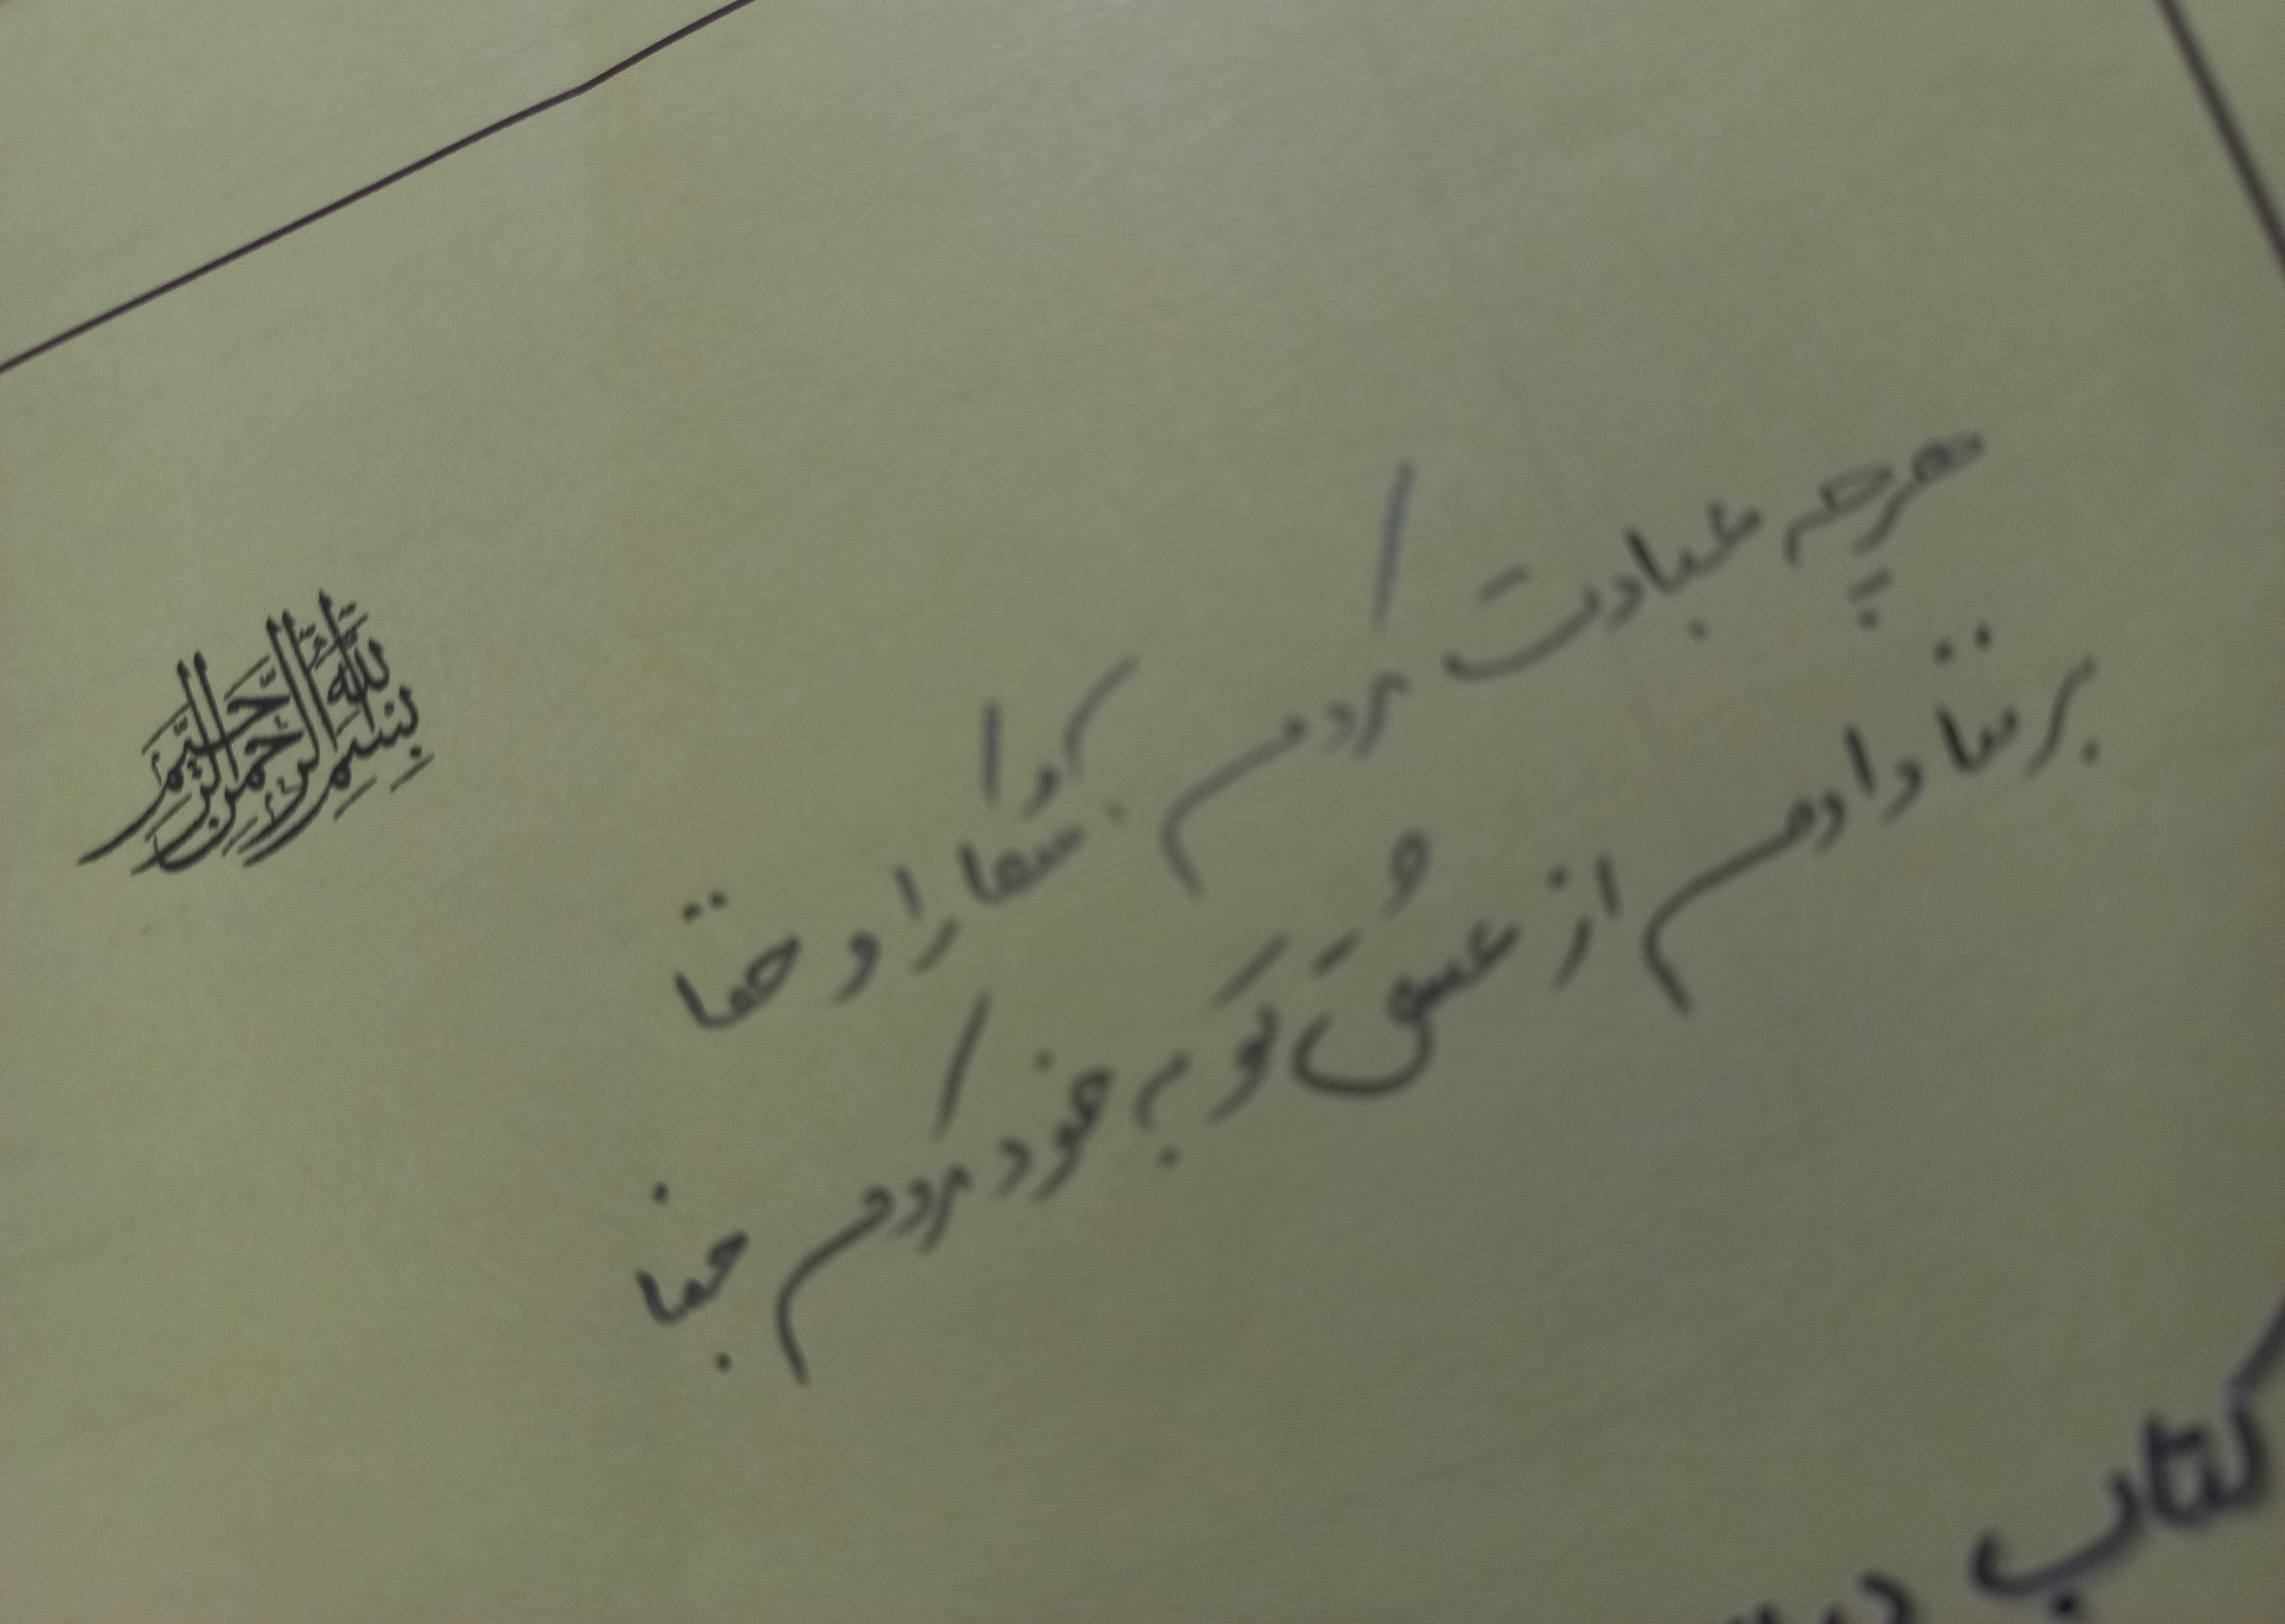 بسم الله الرحمن الرحیم
هرچه عبادت کردم را و حقا
بر تنا دادم از عشق تو به خود کردم جفا
کتاب